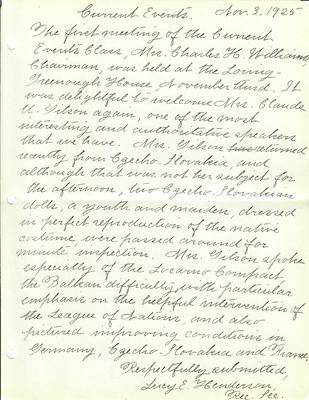 Current Events. Nov. 3, 1925
The first meeting of the Current
Events Class, Mrs. Charles H. Williams,
Chairman, was held at the Loring-
Greenough House November third. It
was delightful to welcome Mrs. Claude
U. Gilson again, one of the most
interesting and authoritative speakers
that we have. Mrs. Gilson has returned
recently from Czecho-Slovakia, and
although that was not her subject for
the afternoon, two Czecho-Slovakian
dolls, a youth and maiden, dressed
in perfect reproduction of the native
costume were passed around for
minute inspection. Mrs. Gilson spoke
especially of the Locarno Compact,
the Balkan difficulty with particular
emphasis on the helpful intervention of
the League of Nations, and also
pictured improving conditions in
Germany, Czecho-Slovakia and France.
Respectfully submitted,
Lucy E. Henderson,
Rec. Sec.